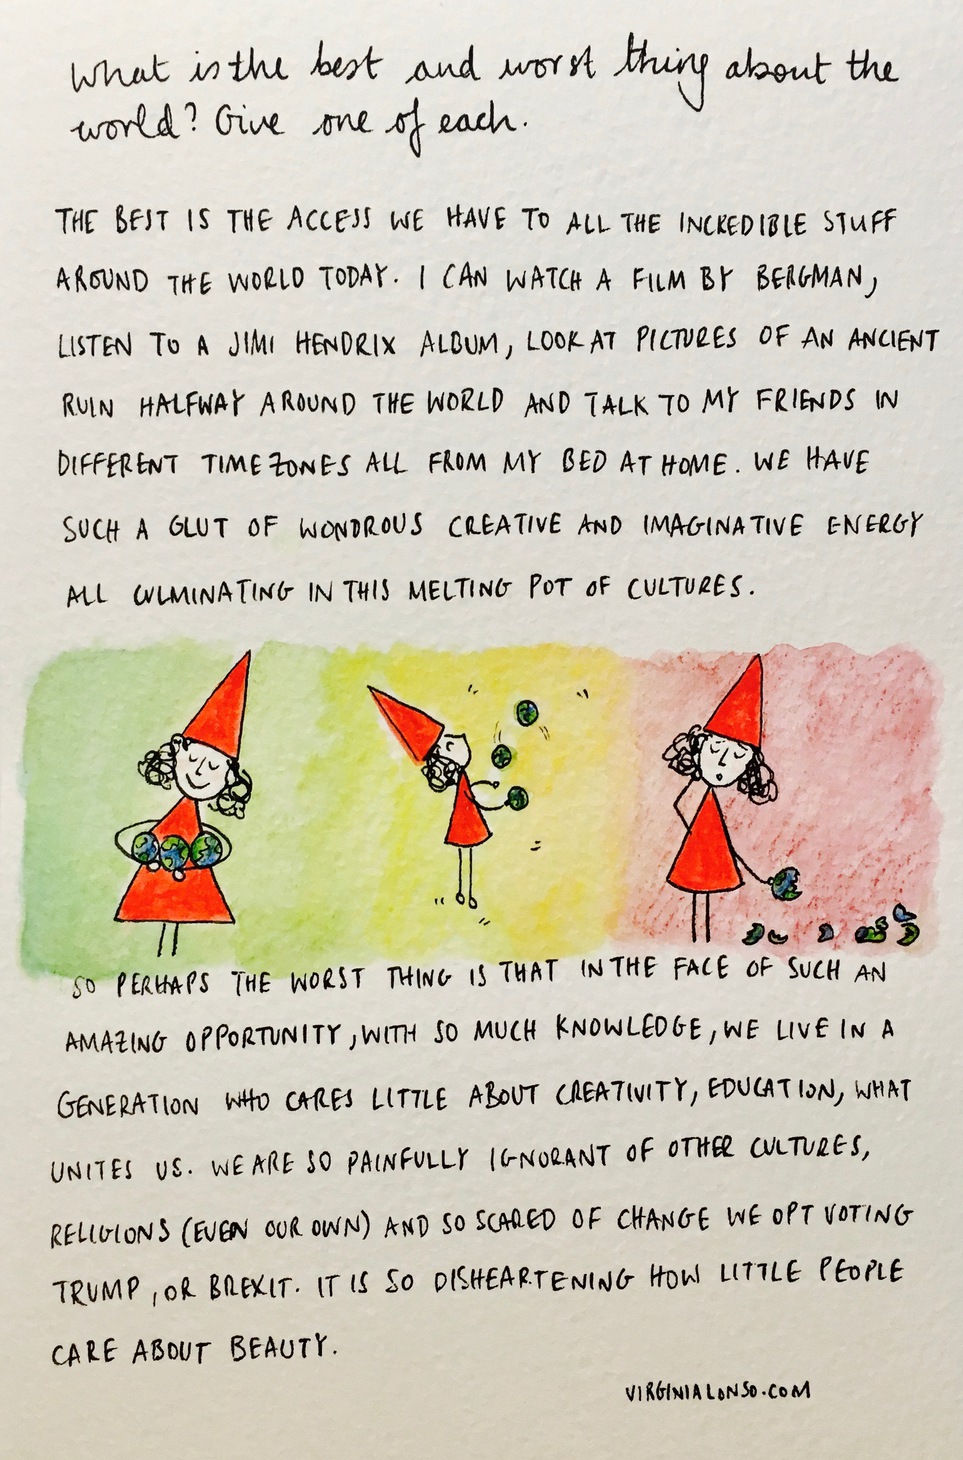 What is the best and worst thing about the
world? Give one of each.
THE BEST IS THE ACCESS WE HAVE TO ALL THE INCREDIBLE STUFF
AROUND THE WORLD TODAY. I CAN WATCH A FILM BY BERGMAN,
LISTEN TO A JIMI HENDRIX ALBUM, LOOK AT PICTURES OF AN ANCIENT
RUIN HALFWAY AROUND THE WORLD AND TALK TO MY FRIENDS IN
DIFFERENT TIMEZONES ALL FROM MY BED AT HOME. WE HAVE
SUCH A GLUT OF WONDROUS CREATIVE AND IMAGINATIVE ENERGY
ALL CULMINATING IN THIS MELTING POT OF CULTURES.
SO PERHAPS THE WORST THING IS THAT IN THE FACE OF SUCH AN
AMAZING OPPORTUNITY, WITH SO MUCH KNOWLEDGE, WE LIVE IN A
GENERATION WHO CARES LITTLE ABOUT CREATIVITY, EDUCATION, WHAT
UNITES US. WE ARE SO PAINFULLY IGNORANT OF OTHER CULTURES,
RELIGIONS (EVEN OUR OWN) AND SO SCARED OF CHANGE WE OPT VOTING
TRUMP, OR BREXIT. IT IS SO DISHEARTENING HOW LITTLE PEOPLE
CARE ABOUT BEAUTY.
VIRGINIALONSO.COM